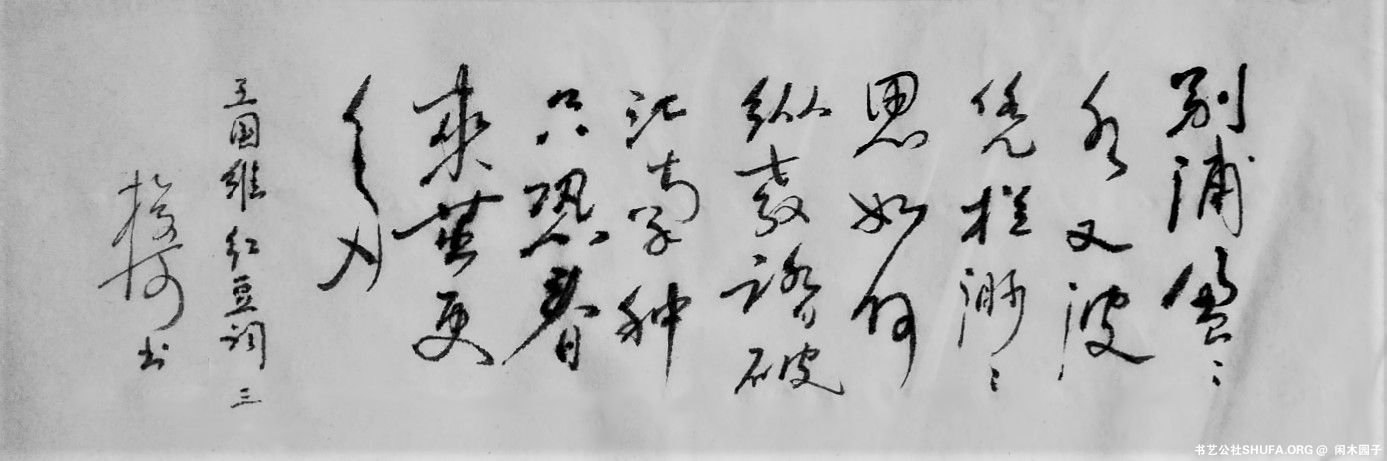 别浦盈〻
水又波
凭栏渺〻
思如何
纵教踏破
江南种
只恐春
来茧更
多
王国维红豆词三
书
书艺公社SHUFA.ORG @ 闲木园子